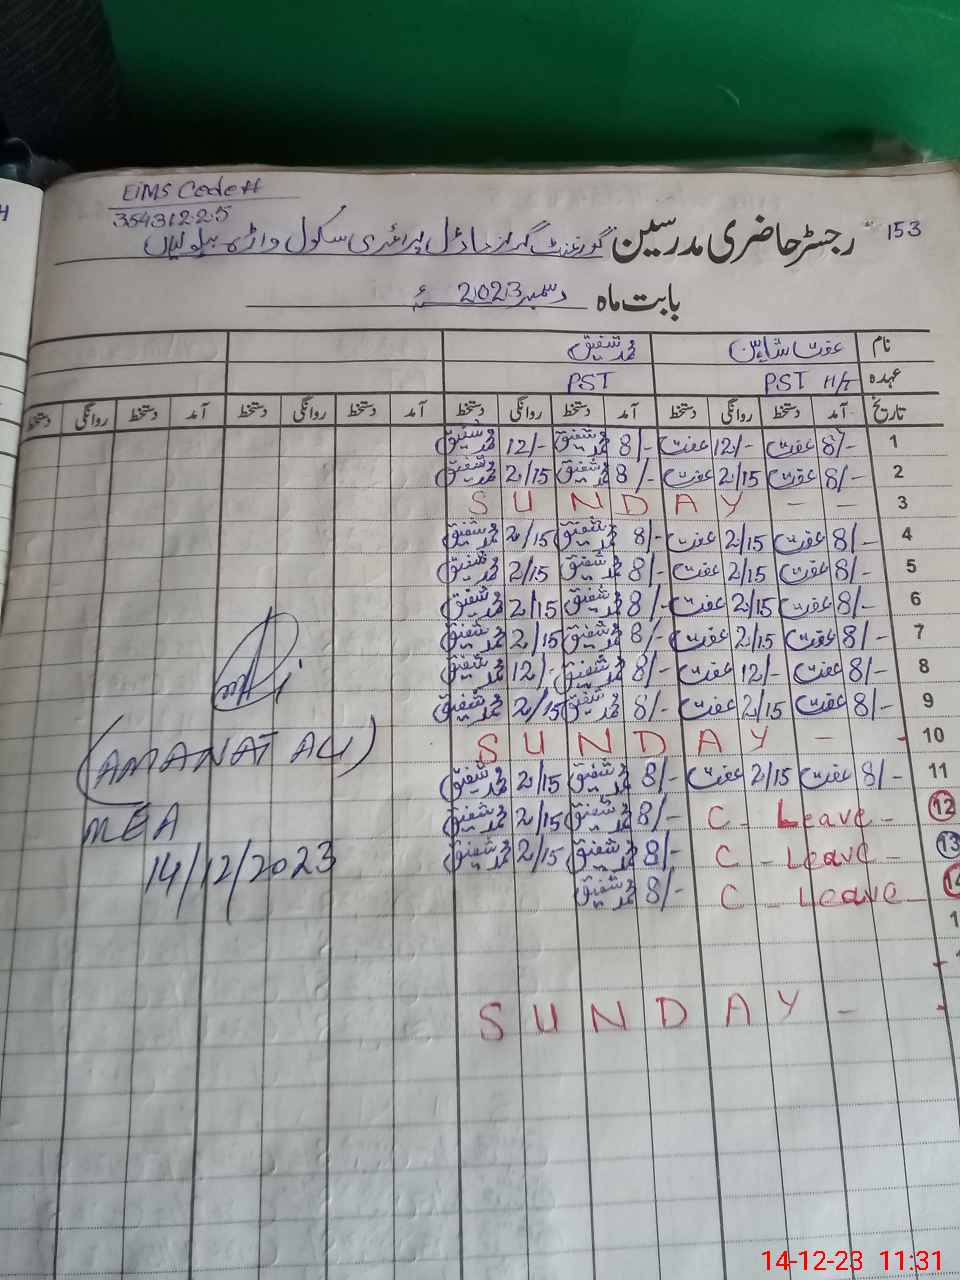 EiMS Code#
35431225
153
رجسٹر حاضری مدرسین گورنمنٹ گرلز ماڈل پرائمری سکول واڑہ
بابت ماہ دسمبر 2023ء
نام عفت شاہین محمد شفیق
عہدہ PST H/T PST
تاریخ آمد دستخط روانگی دستخط آمد دستخط روانگی دستخط آمد دستخط روانگی دستخط آمد دستخط روانگی دستخط
1 8/- عفت 12/- عفت 8/- محمد شفیق 12/- محمد شفیق
2 8/- عفت 2/15 عفت 8/- محمد شفیق 2/15 محمد شفیق
3 SUNDAY - -
4 8/- عفت 2/15 عفت 8/- محمد شفیق 2/15 محمد شفیق
5 8/- عفت 2/15 عفت 8/- محمد شفیق 2/15 محمد شفیق
6 8/- عفت 2/15 عفت 8/- محمد شفیق 2/15 محمد شفیق
7 8/- عفت 2/15 عفت 8/- محمد شفیق 2/15 محمد شفیق
8 8/- عفت 12/- عفت 8/- محمد شفیق 12/- محمد شفیق
9 8/- عفت 2/15 عفت 8/- محمد شفیق 2/15 محمد شفیق
10 SUNDAY - -
11 8/- عفت 2/15 عفت 8/- محمد شفیق 2/15 محمد شفیق
12 C - Leave - 8/- محمد شفیق 2/15 محمد شفیق
13 C - Leave - 8/- محمد شفیق 2/15 محمد شفیق
14 C - Leave - 8/- محمد شفیق
SUNDAY - -
(AMANAT ALI)
MEA
14/12/2023
14-12-23 11:31